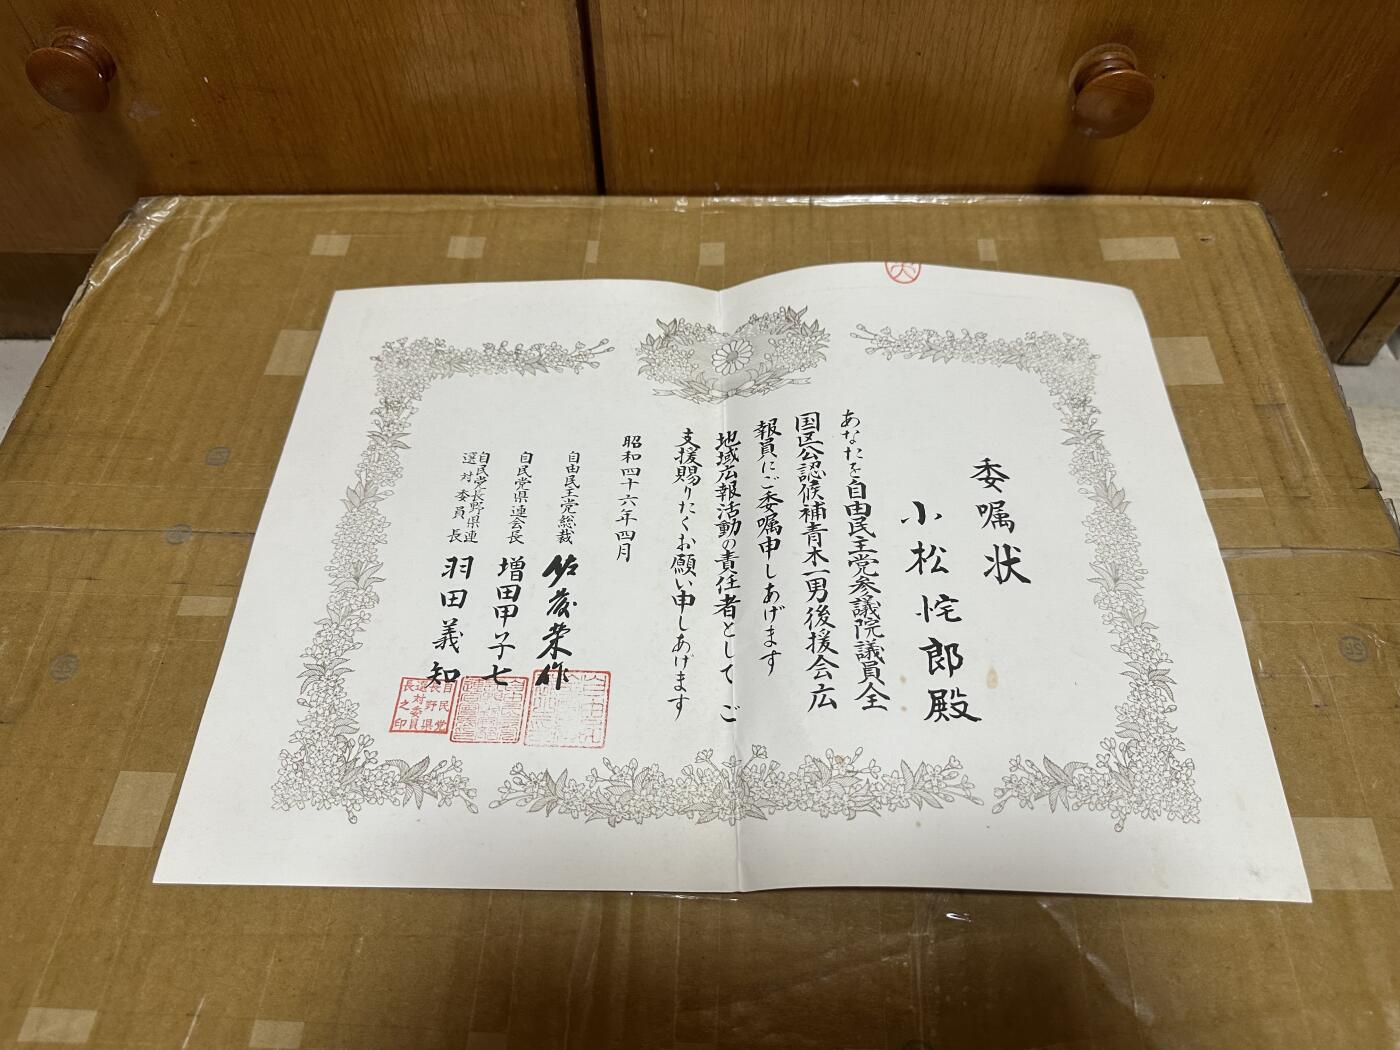 委嘱状
小松恠郎殿
あなたを自由民主党参議院議員全
国区公認候補青木一男後援会広
報員にご委嘱申しあげます
地域広報活動の責任者としてご
支援賜りたくお願い申しあげます
昭和四十六年四月
自由民主党総裁 佐藤栄作
自民党県連会長 増田甲子七
自民党長野県連
選対委員長 羽田義知
自民党
長野県
選対委員
長之印